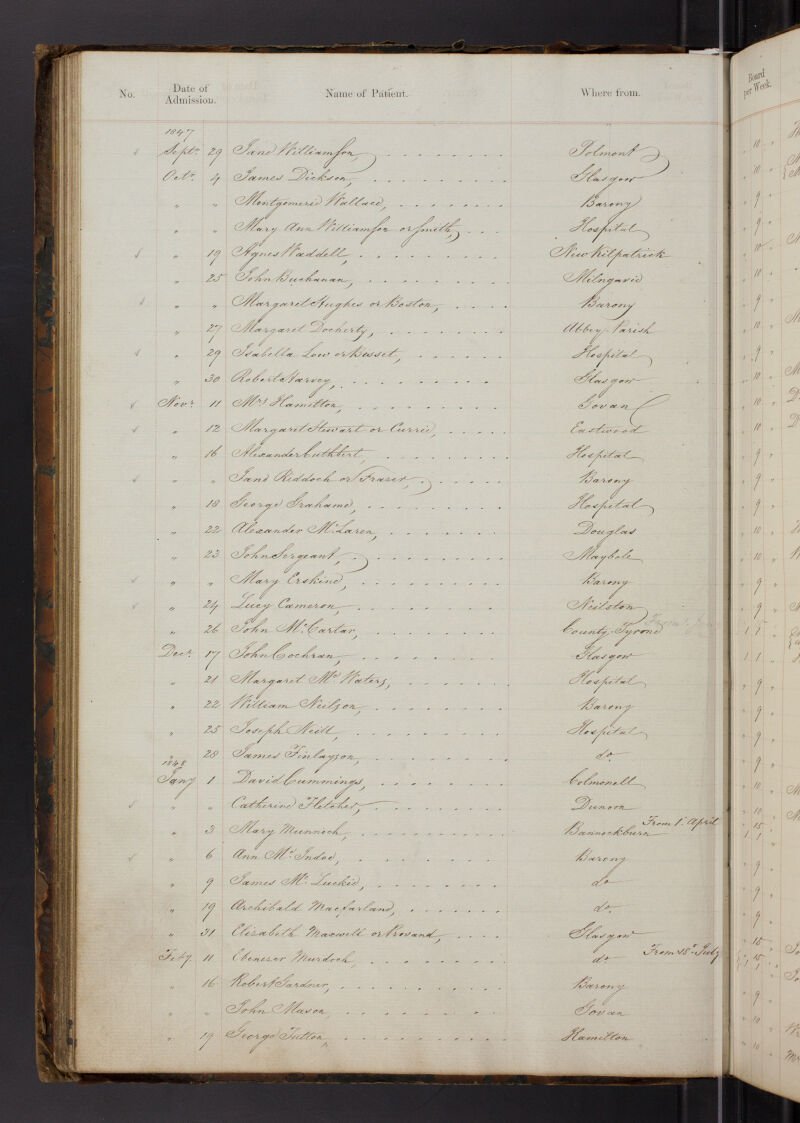 No. Date of Admission. Name of Patient. Where from. Board per Week.
1847
Septr 29 Jane Williamson, Polmont 10 "
Octr 4 James Dickson, Glasgow " 10 "
" " Montgomerie Wallace, Barony " 9 "
" " Mary Ann Williamson or Smith, Hospital " 9 "
" 19 Agnes Waddell, New Kilpatrick " 10 "
" 25 John Buchanan, Milngavie " 10 "
" " Margaret Hughes or Boston, Barony " 9 "
" 27 Margaret Docherty, Abbey Parish " 10 "
" 29 Isabella Low or Bisset, Hospital " 9 "
" 30 Robert Harvey, Glasgow " 10 "
Novr 11 Mrs Hamilton, Govan " 10 "
" 12 Margaret Stewart or Currie, Eastwood " 10 "
" 16 Alexander Cuthbert, Hospital " 9 "
" " Jane Reddoch or Fraser, Barony " 9 "
" 18 George Grahame, Hospital " 9 "
" 22 Alexander McLaren, Douglas " 10 "
" 23 John Sergeant, Maybole " 10 "
" " Mary Erskine, Barony " 9 "
" 24 Lucy Cameron, Neilston " 9 "
" 26 John McCartar, County Tyrone From 1 1 5 "
Decr 17 John Cochran, Glasgow 1 1 "
" 21 Margaret McWaters, Hospital " 9 "
" 22 William Neilson, Barony " 9 "
" 25 Joseph Neill, Hospital " 9 "
" 28 James Finlayson, do. " 9 "
1848
Jany 1 David Cummings, Colmonell " 10 "
" " Catherine Fletcher, Dunoon " 10 "
" 3 Mary Munnoch, Bannockburn From 1st April " 15 " 1 1 "
" 6 Ann McIndoe, Barony " 9 "
" 9 James McLuckie, do " 9 "
" 19 Archibald Macfarland, do. " 9 "
" 31 Elizabeth Maxwell or Provand, Glasgow " 15 "
Feby 11 Ebenezer Murdoch, do From 15th July " 15 "
" 16 Robert Gardner, Barony " 9 "
" " John Mason, Govan " 10 "
" 19 George Tutton, Hamilton " 10 "